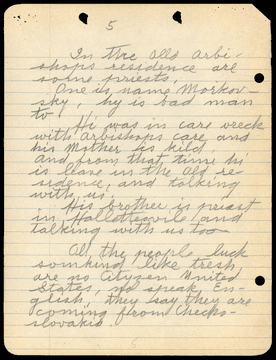 5
In the old Arbi-
shops residence are
some priests,
One is, name Morkov-
sky, hy is bad man
to
Hi was in care wreck
with Arbishops care and
his Mother is kild.
and from that time hi
is leave in the old re-
sidence, and talking
with us,
His brother is priest
in Hallettsville and
talking with us too
All the people luck
somking like tresh,
are no Citysen United
States, no speak En-
glish, they say they are
coming from Checko-
slovakia
6